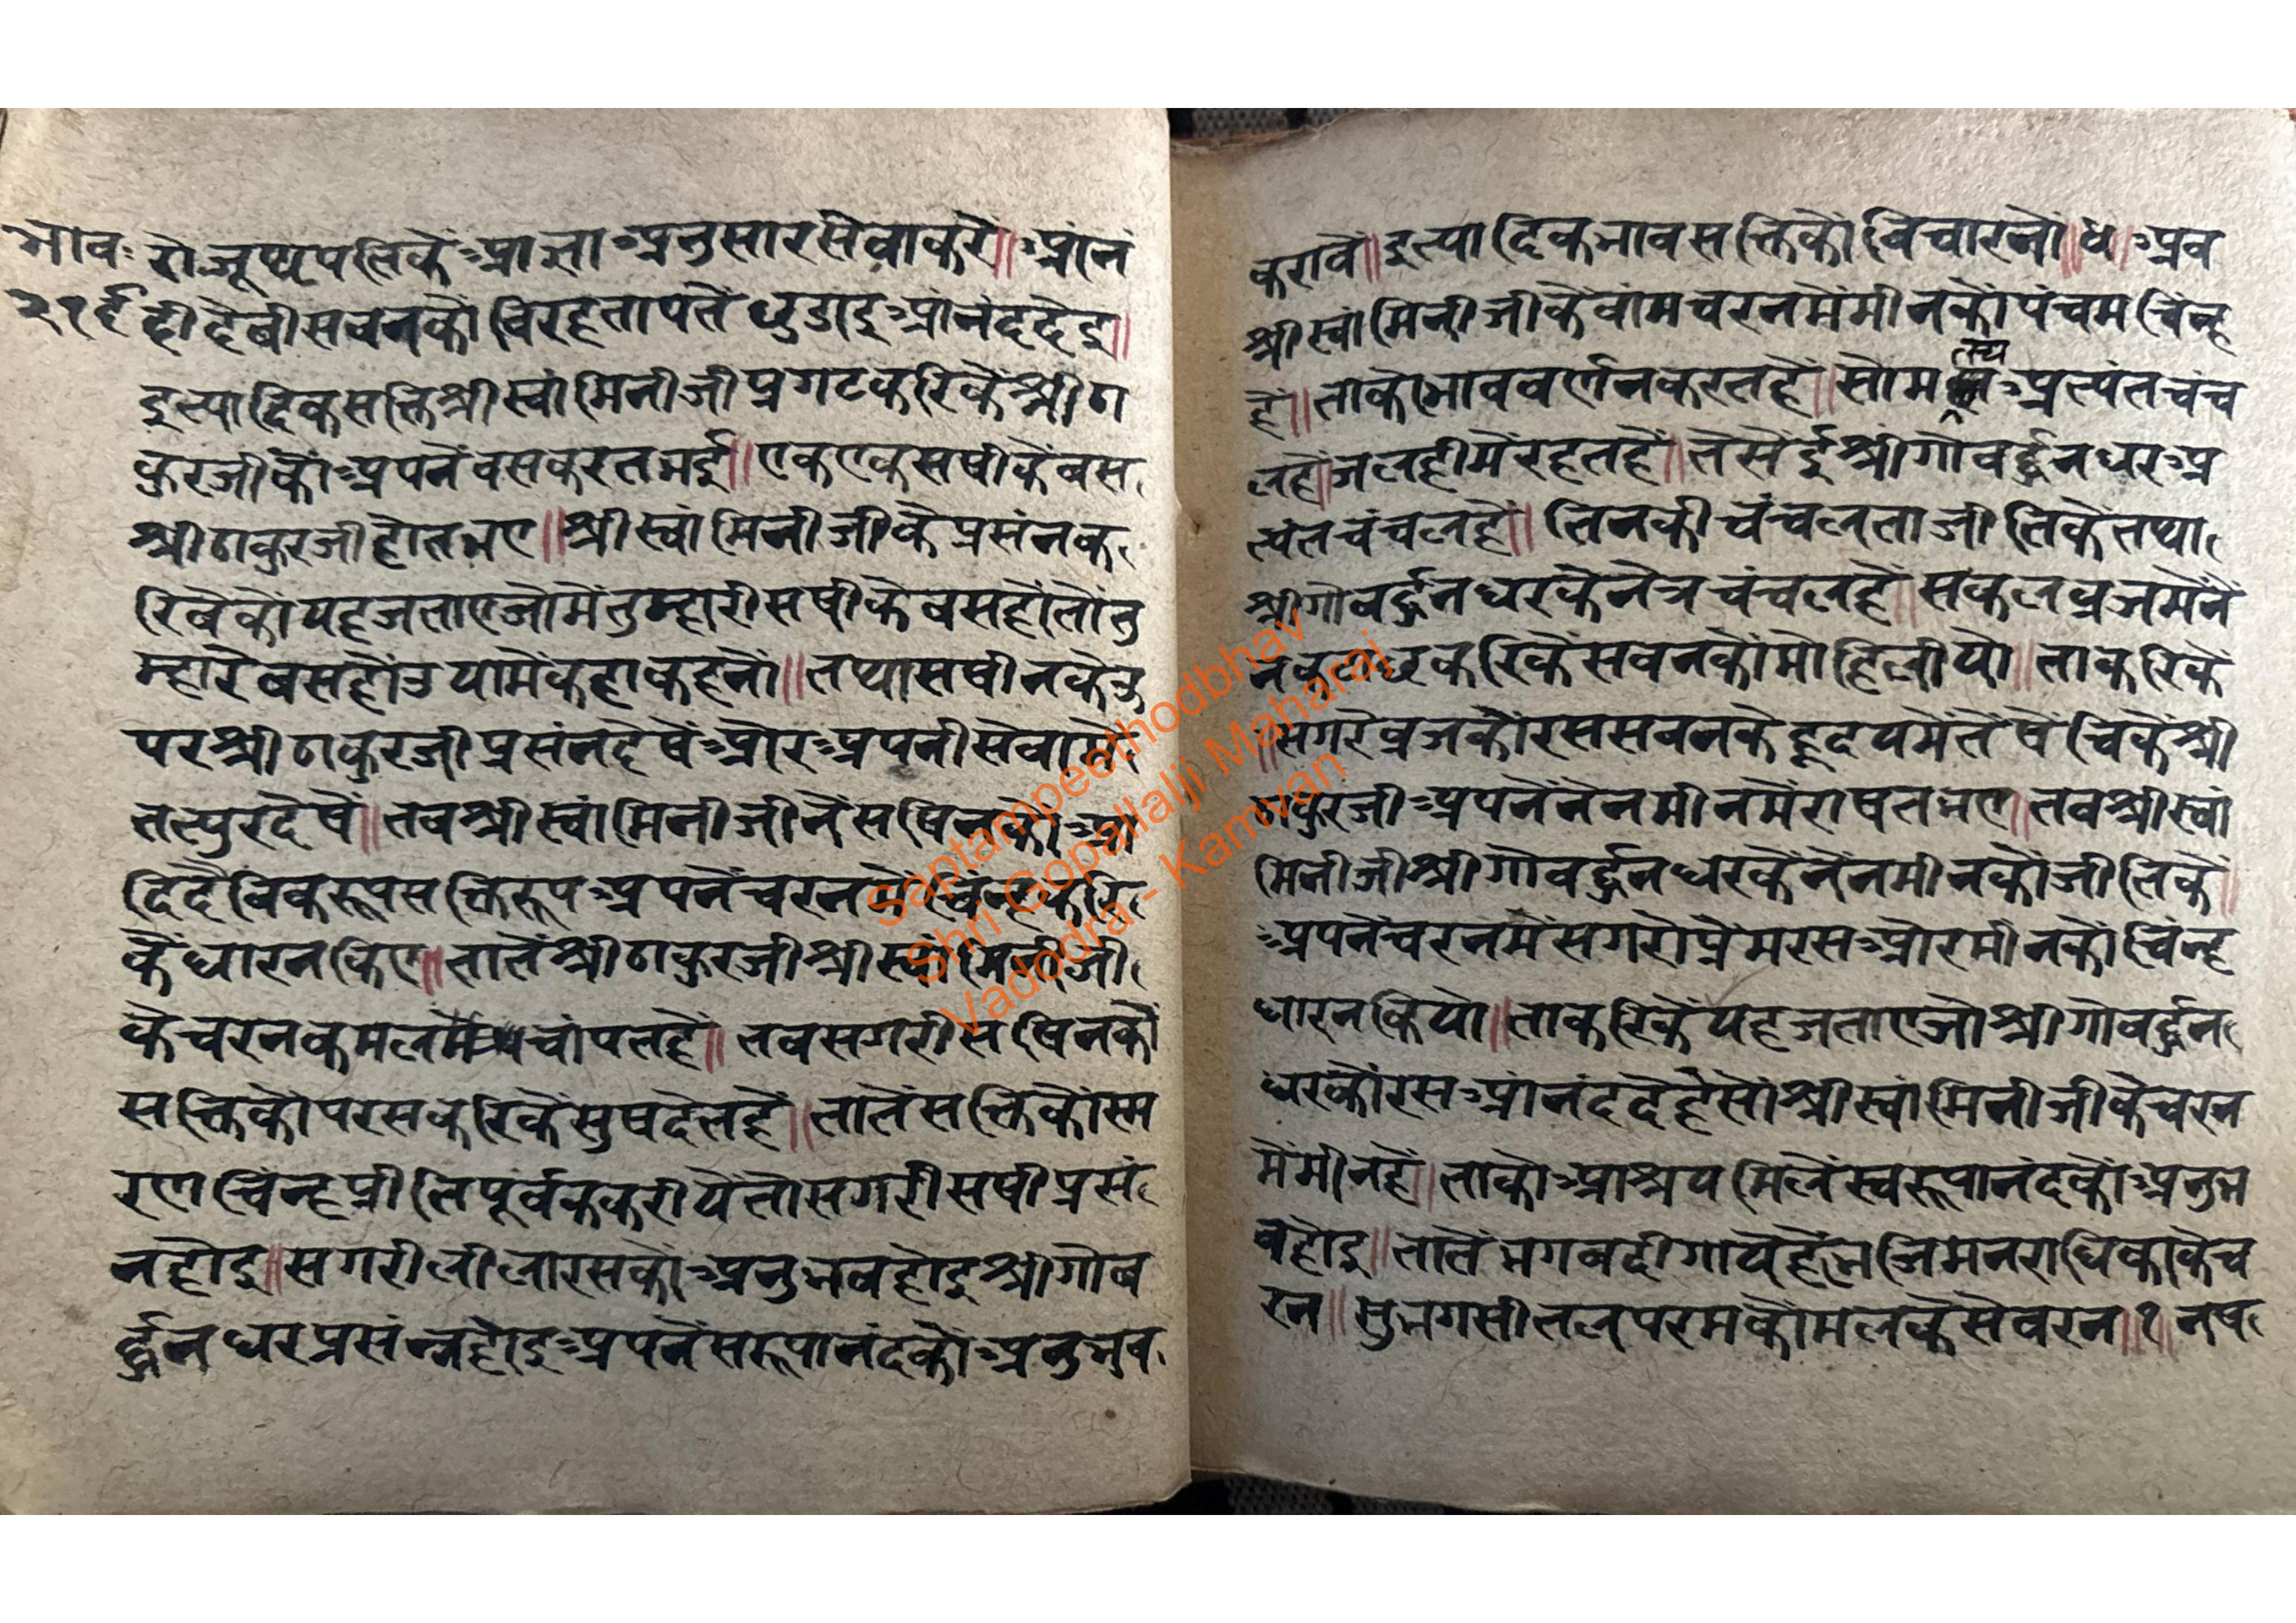 भावः
२१६
रो जूथपतिकें आज्ञा अनुसार सेवा करें॥ आंनं
ही दैवी सबनकौ विरहतापतें छुडाइ आंनंद देइ॥
इत्यादिक सक्ति श्रीस्वांमिनीजी प्रगट करिकें श्रीठा
कुरजीकौं अपनें वस करत भई॥ एकएक सषीकें बस
श्रीठाकुरजी होत भए॥ श्रीस्वांमिनीजीके प्रसंन क
रिवेकौं यह जताए जो मे तुम्हारी सषीके बस हों तो तु
म्हारे बस होंउ यामें कहा कहनों॥ तथा सषीनके उ
पर श्रीठाकुरजी प्रसंन देषें और अपनी सेवामें
तत्पुर देषें॥ तब श्रीस्वांमिनीजीनें सषिनकौं आ
दिदैविक रूप सक्तिरूप अपनें चरनमें चिंन्ह करि
कें धारन किए॥ तातें श्रीठाकुरजी श्रीस्वांमिनीजी
के चरनकमलमें चांपत हें॥ तब सगरी सषिनकौं
सक्तिकौ परस करिकें सुष देत हें॥ तातें सक्तिकौं स्म
रण चिंन्ह प्रीतिपूर्वक करीयें तो सगरी सषी प्रसं
न होइ॥ सगरी लीला रसकौं अनुभव होइ श्रीगोव
र्द्धनधर प्रसंन्न होइ अपनें सरूपानंदकौ अनुभव
करावें॥ इत्यादिक भाव सक्तिकौ विचारनों॥ ४॥ अब
श्रीस्वांमिनीजीकें वांम चरनमें मीनकौ पंचम चिंन्ह
हें॥ ताकौ भाव वर्णन करत हें॥ सो मत्स्य अत्यंत चंच
ल हें जलहीमें रहत हें॥ तैसेंई श्रीगोवर्द्धनधर अ
त्यंत चंचल हें॥ तिनकी चंचलता जीतिकें तथा
श्रीगोवर्द्धनधरके नेत्र चंचल हें॥ सकल व्रजमें नें
न करिकें सबनकौं मोहि लीयो॥ ताकरिकें
॥सगरे व्रजकौ रस सबनके हृदयमेंतें षेंचिकें श्री
ठाकुरजी अपनें नेंनमीनमें राषत भए॥ तब श्रीस्वां
मिनीजी श्रीगोवर्द्धनधरकें नेंनमीनकौं जीतिकें॥
अपनें चरनमें सगरो प्रेमरस और मीनकौ चिंन्ह
धारन कियो॥ ताकरिकें यह जताए जो श्रीगोवर्द्धन
धरकौं रस आंनंद दे हें सो श्रीस्वांमिनीजीके चरन
में मीन हें॥ ताकौ आश्रय मिलें स्वरूपानंदकौ अनुभ
व होइ॥ तातें भगवदी गाये हें भजि मन राधिकाके च
रन॥ सुभग सीतल परम कोमल कैसे वरन॥ १॥ नष